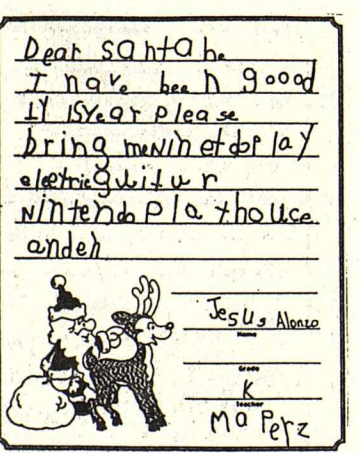 Dear santa he
I have been goood
1y 15year please
bring me Ninetdoplay
electric guitur
Nintendo pla thouce
andeh
Jesus Alonzo
Name
Grade
K
Teacher
Ma Perz